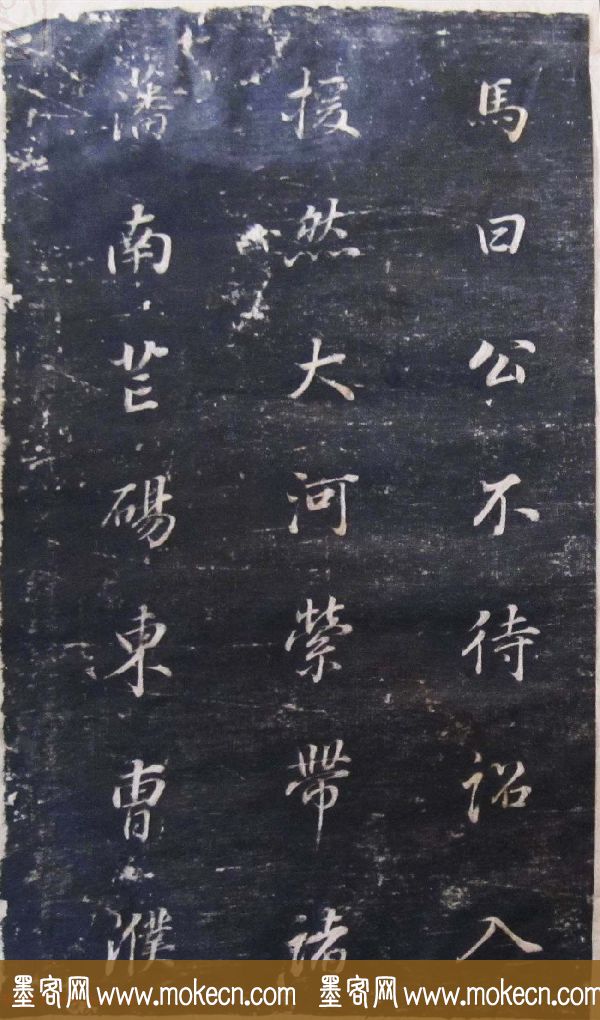 馬曰公不待詔入
援然大河縈帶諸
藩南芒碭東曹濮
墨客网 www.mokecn.com 墨客网 www.mokecn.com